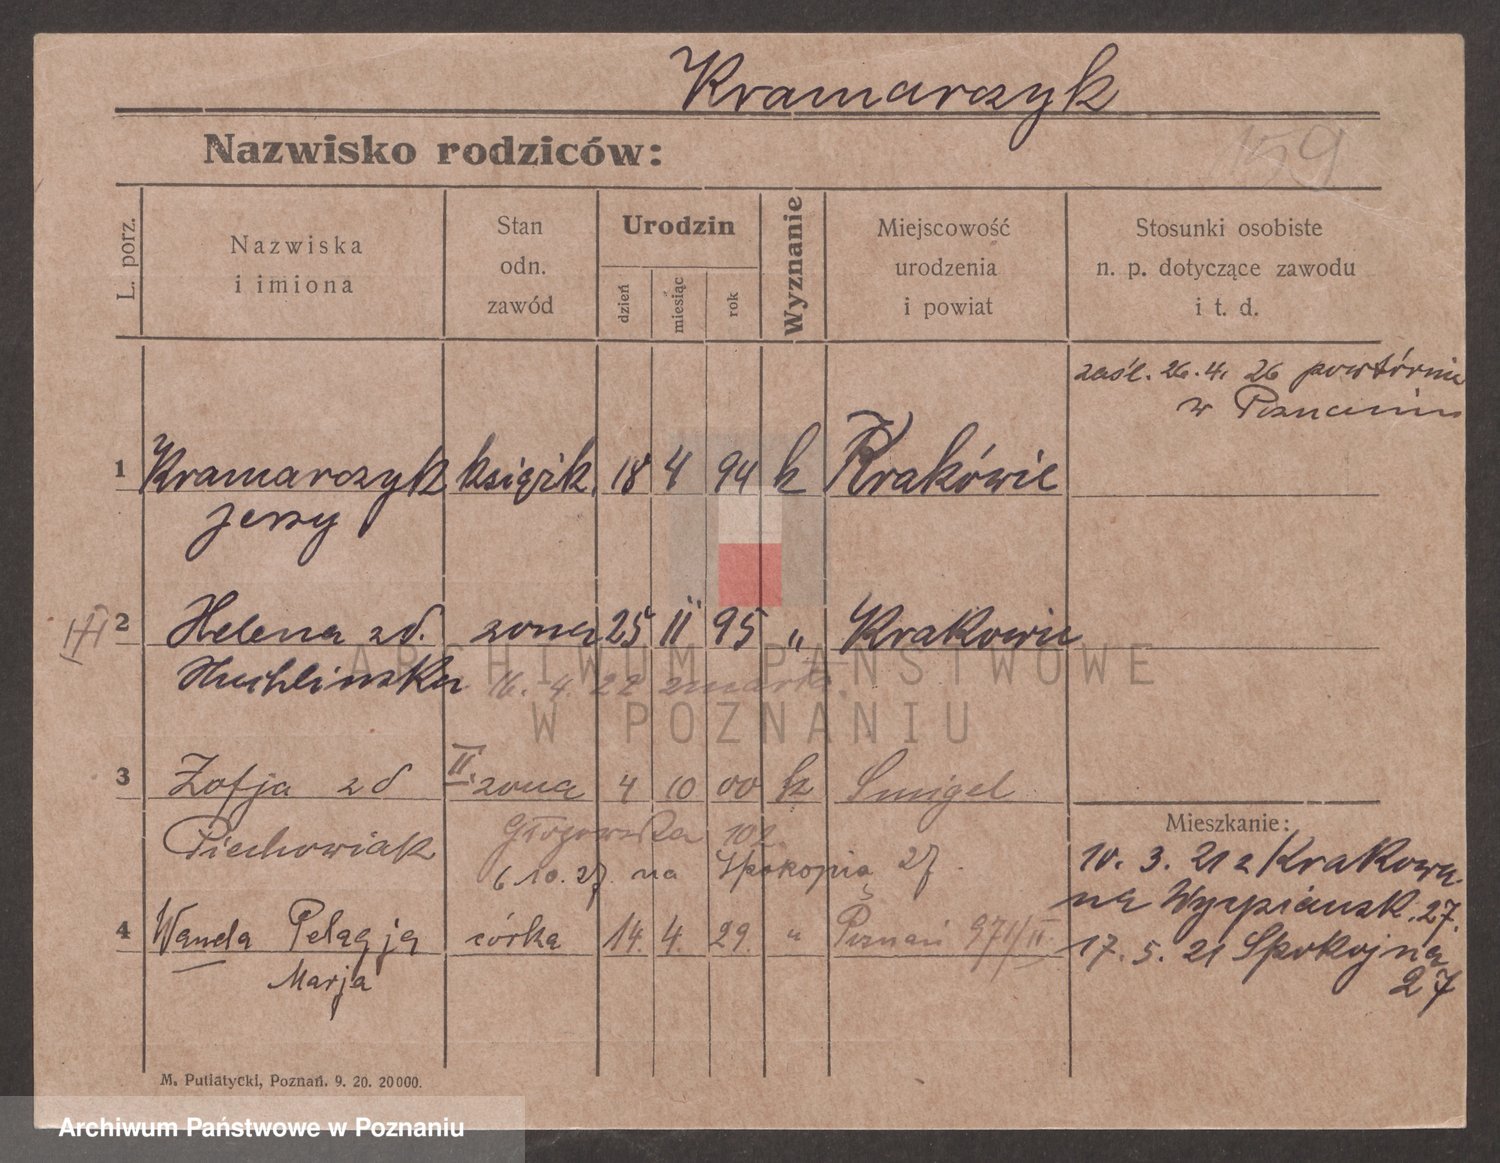 Kramarczyk
159
Nazwisko rodziców:
L. porz.
Nazwiska
i imiona
Stan
odn.
zawód
Urodzin
dzień
miesiąc
rok
Wyznanie
Miejscowość
urodzenia
i powiat
Stosunki osobiste
n. p. dotyczące zawodu
i t. d.
zaśl. 26. 4. 26 powtórnie
w Poznaniu
1 Kramarczyk książk. 18 4 94 k Kraków
Jerzy
2 Helena zd. żona 25 II 95 " Krakowie
16. 4. 22 zmarła.
3 Zofja zd II. żona 4 10 00 k Smigel
Piechowiak Głogowska 102.
6 10. 27 na Spokojną 27.
4 Wanda Pelagja córka 14. 4. 29. " Poznań 971/II
Marja
Mieszkanie:
10. 3. 21 z Krakowa
na Wyspiańsk. 27.
17. 5. 21 Spokojna
27
M. Putiatycki, Poznań. 9. 20. 20000.
ARCHIWUM PAŃSTWOWE
W POZNANIU
Archiwum Państwowe w Poznaniu